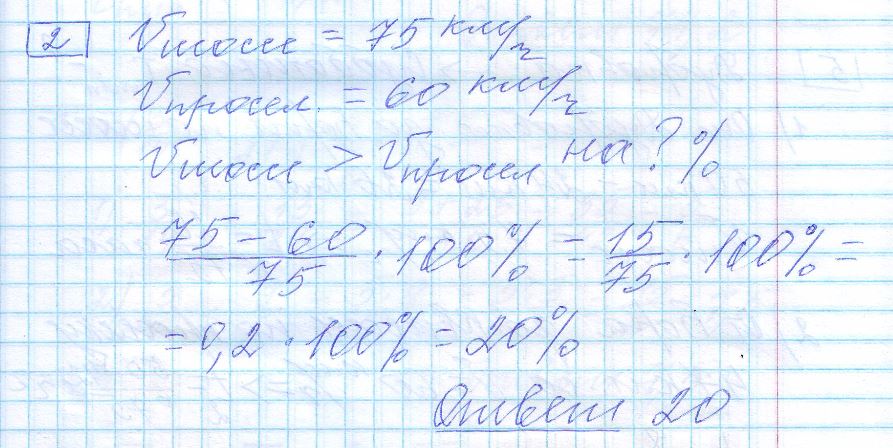 2 Vшоссе = 75 км/ч
Vпросел. = 60 км/ч
Vшоссе > Vпросел на ? %
(75 - 60)/75 · 100% = 15/75 · 100% =
= 0,2 · 100% = 20%
Ответ 20